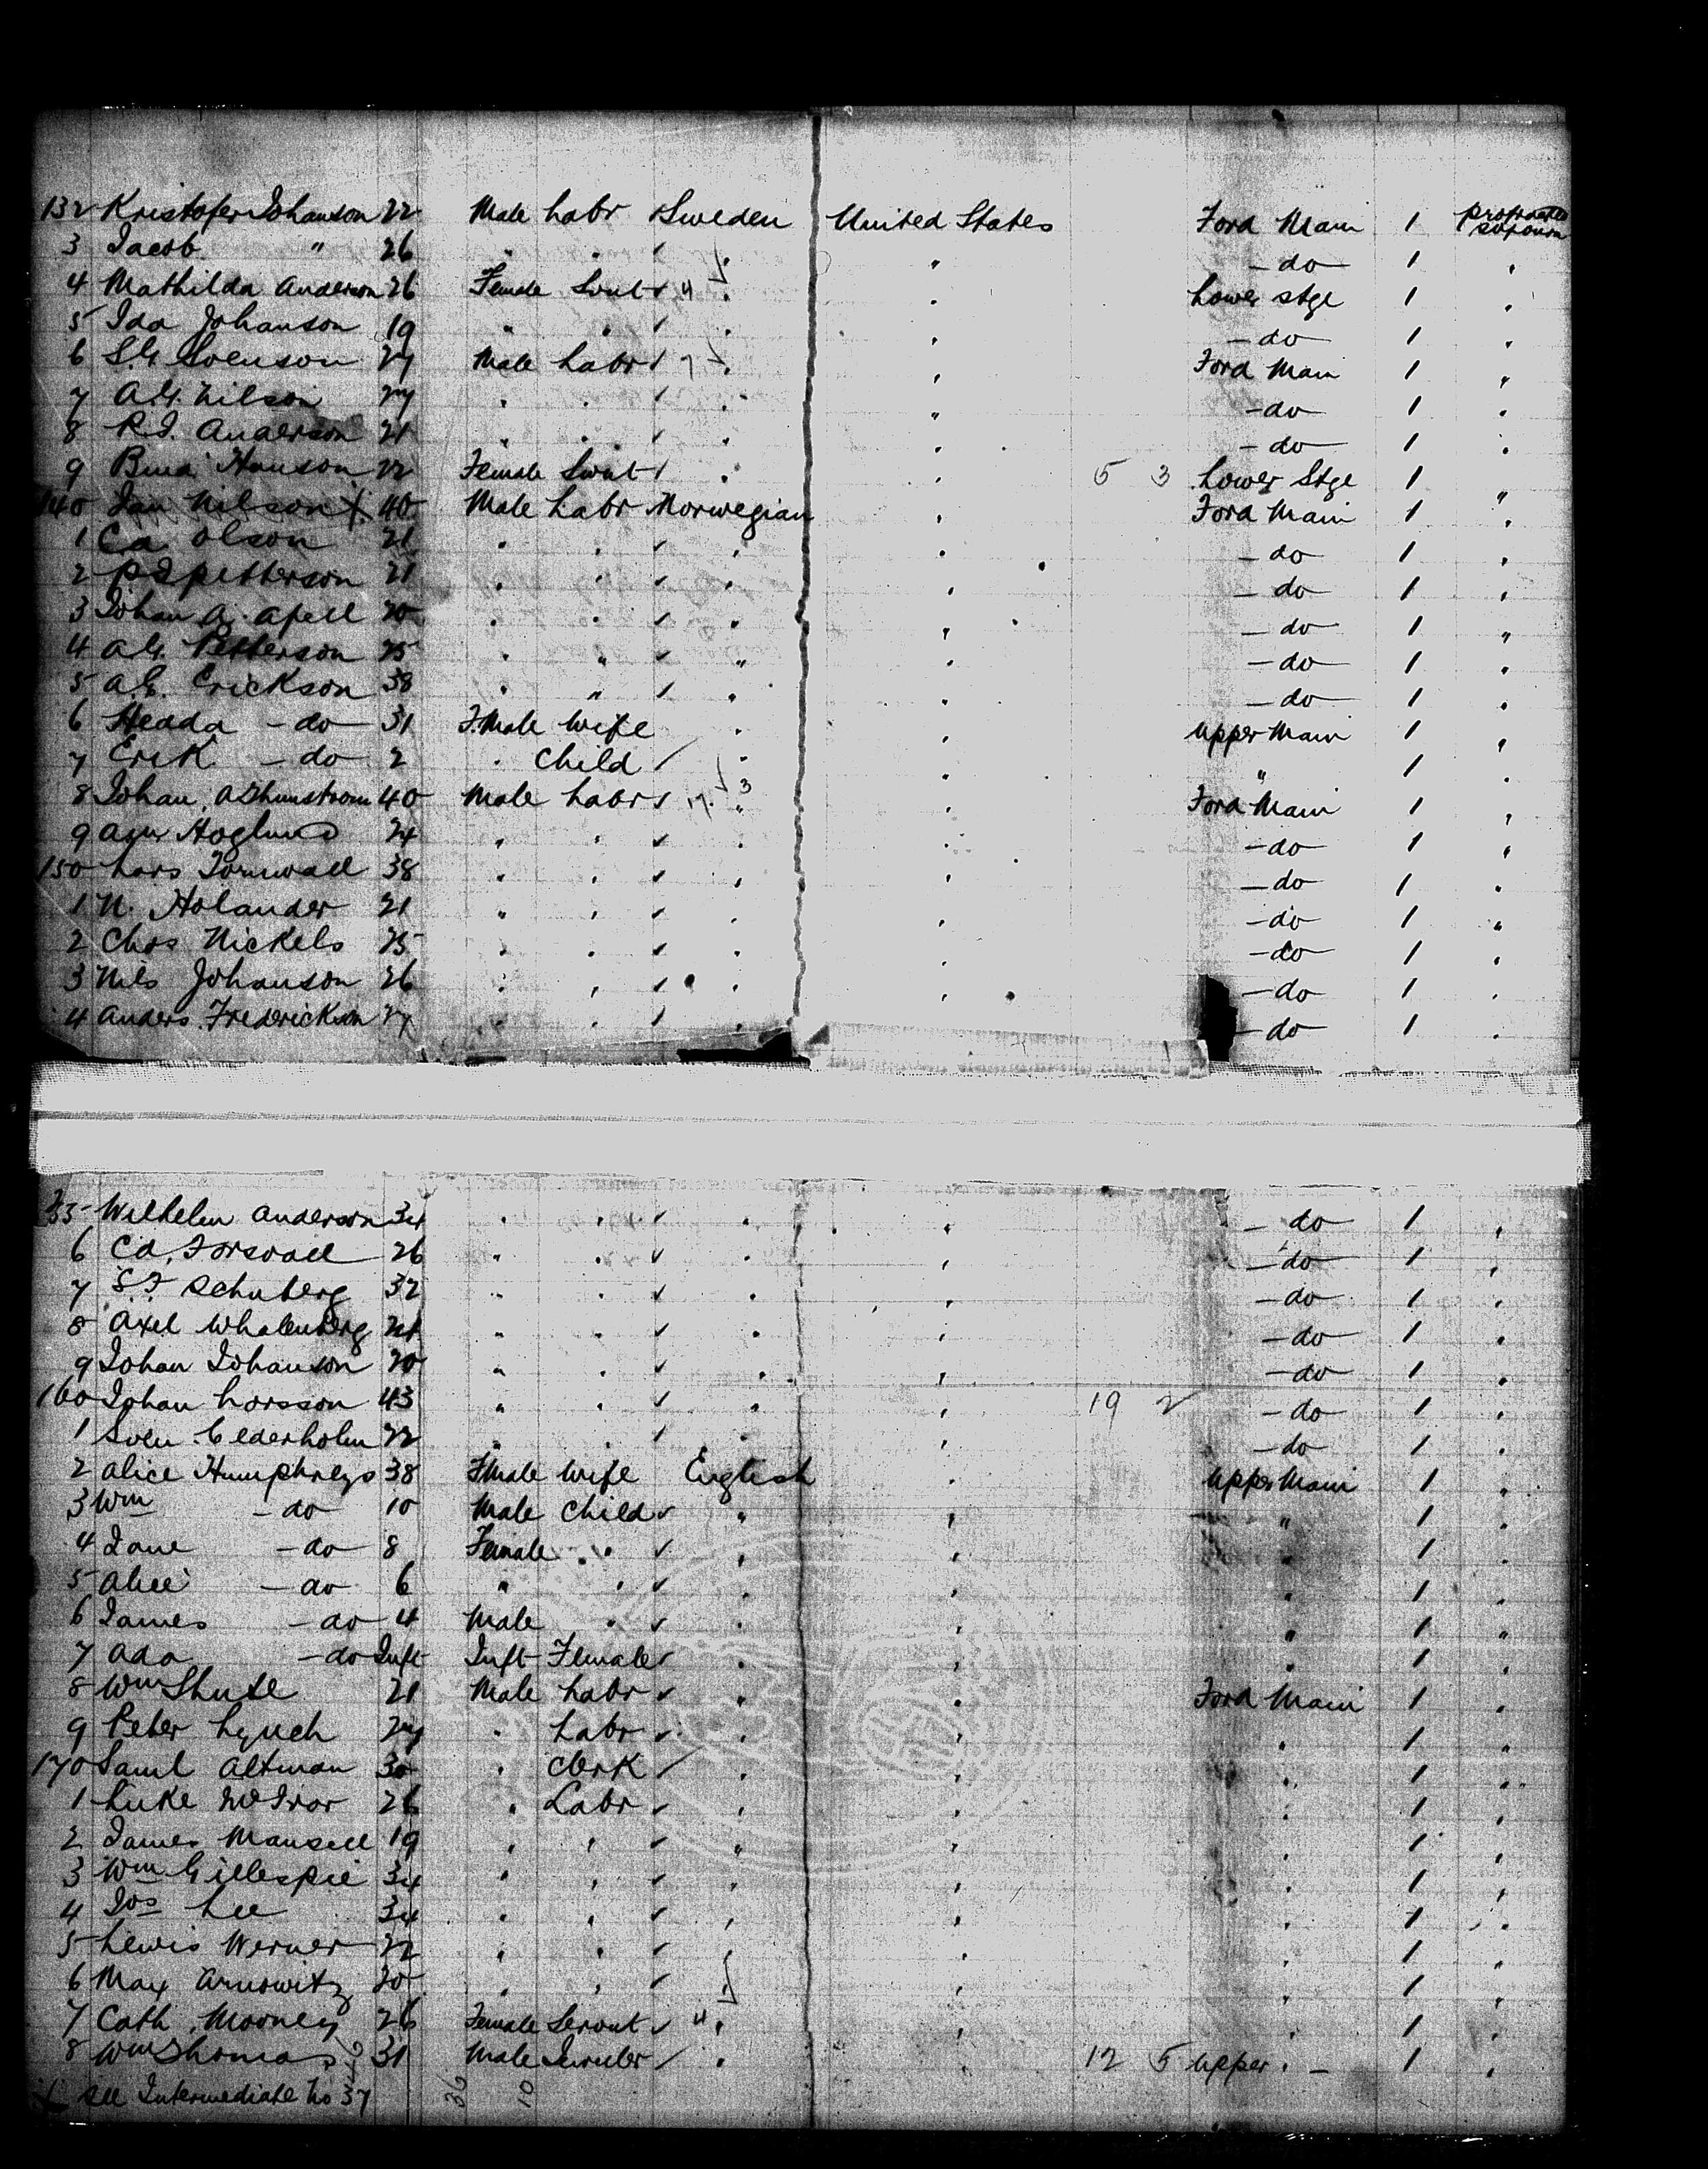 132 Kristofer Johanson 22 Male Labr Sweden United States Ford Main 1
3 Jacob " 26 " " " " - do - 1 "
4 Mathilda Anderson 26 Female Svnt 4 " " Lower Stge 1 "
5 Ida Johanson 19 " " " " - do - 1 "
6 S.G. Svenson 27 Male Labr 7 " " Ford Main 1 "
7 A.G. Nilson 27 " " " " - do - 1 "
8 P.J. Anderson 21 " " " " - do - 1 "
9 Hanson 22 Female Svnt " " 5 3 Lower Stge 1 "
140 Jan Nilson X 40 Male Labr Norwegian " Ford Main 1 "
1 Ca Olson 21 " " " " - do - 1 "
2 Petterson 21 " " " " - do - 1 "
3 Johan A. Apell 20 " " " " - do - 1 "
4 A.G. Petterson 25 " " " " - do - 1 "
5 A.E. Erickson 38 " " " " - do - 1 "
6 Hedda - do - 31 F.Male Wife " " Upper Main 1 "
7 Erik - do - 2 " Child " " " 1 "
8 Johan 40 Male Labr 17 3 " " Ford Main 1 "
9 Hoglund 24 " " " " - do - 1 "
150 Lars Tornwall 38 " " " " - do - 1 "
1 N. Holander 21 " " " " - do - 1 "
2 Chas Nickels 25 " " " " - do - 1 "
3 Nils Johanson 26 " " " " - do - 1 "
4 Anders Frederickson 27 " " " " - do - 1 "
155 Wilhelm Anderson 34 " " " " - do - 1 "
6 Forsvall 26 " " " " - do - 1 "
7 S.F. Schuberg 32 " " " " - do - 1 "
8 Axel Whalenberg 21 " " " " - do - 1 "
9 Johan Johanson 20 " " " " - do - 1 "
160 Johan Larsson 43 " " " " 19 2 - do - 1 "
1 Sven Cederholm 22 " " " " - do - 1 "
2 Alice Humphreys 38 FMale Wife English " Upper Main 1 "
3 Wm - do 10 Male Child " " " 1 "
4 Jane - do - 8 Female " " " " 1 "
5 Alice - do - 6 " " " " " 1 "
6 James - do - 4 Male " " " " 1 "
7 Ada - do - Inft Inft Female " " " 1 "
8 Wm Shute 21 Male Labr " " Ford Main 1 "
9 Peter Lynch 27 " Labr " " " 1 "
170 Saml Altman 30 " Clerk " " " 1 "
1 Luke 26 " Labr " " " 1 "
2 James Mansell 19 " " " " " 1 "
3 Wm Gillespie 34 " " " " " 1 "
4 Jos Lee 34 " " " " " 1 "
5 Lewis Werner 22 " " " " " 1 "
6 Max Arnowitz 20 " " " " " 1 "
7 Cath. Mooney 26 Female Servnt 4 " " " 1 "
8 Wm Thomas 31 Male " " 12 5 Upper " - 1 "
X See Intermediate No 37 36 10